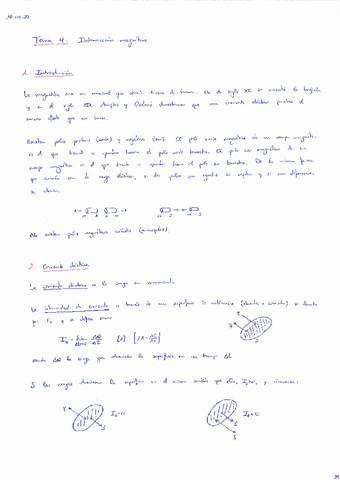 Tema 4: Interacción magnética
1. Introducción
La magnetita era un mineral que atraía trozos de hierro. En el siglo XII se inventó la brújula
y en el siglo XIX Ampère y Oersted descubrieron que una corriente eléctrica produce el
mismo efecto que un imán.
Existen polos positivos (norte) y negativos (sur). El polo norte magnético de un campo magnético
es el que tiende a apuntar hacia el polo norte terrestre. El polo sur magnético de un
campo magnético es el que tiende a apuntar hacia el polo sur terrestre. De la misma forma
que ocurría con la carga eléctrica, si dos polos son iguales se repelen y si son diferentes
se atraen.
No existen polos magnéticos aislados (monopolos).
2. Corriente eléctrica
La corriente eléctrica es la carga en movimiento.
La intensidad de corriente a través de una superficie S
por I_S y se define como
I_S = lim ΔQ/Δt
Δt→0
donde ΔQ la carga que atraviesa la superficie en un tiempo Δt.
Si las cargas atraviesan la superficie en el mismo sentido que ella, I_S>0, y viceversa.
I_S>0
I_S<0